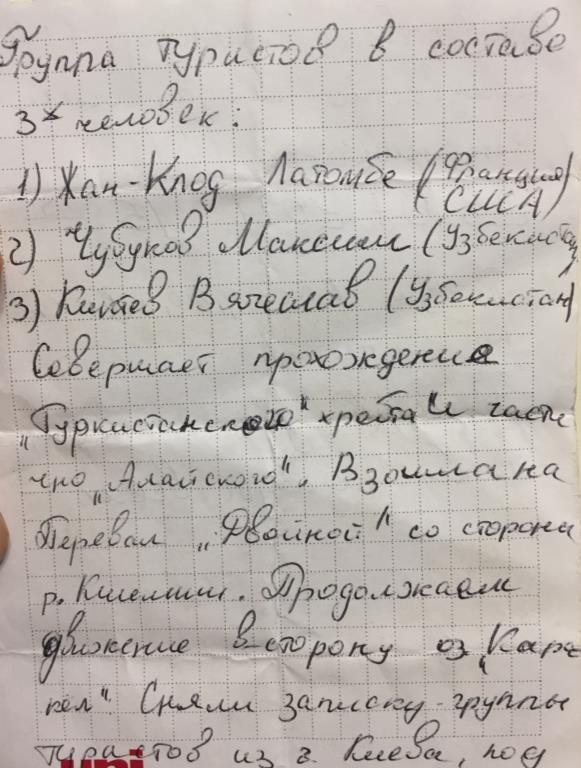 Группа туристов в составе
3х человек:
1) Жан-Клод Латомбе (Франция
США)
2) Чубуков Максим (Узбекистан)
3) Вячеслав (Узбекистан)
Совершает прохождение
„Туркистанского" хребта и части
чно „Алайского". Взошла на
Перевал „Двойной" со стороны
р. Продолжаем
движение в сторону оз „Кара
кел". Сняли записку группы
туристов из г. Киева, под